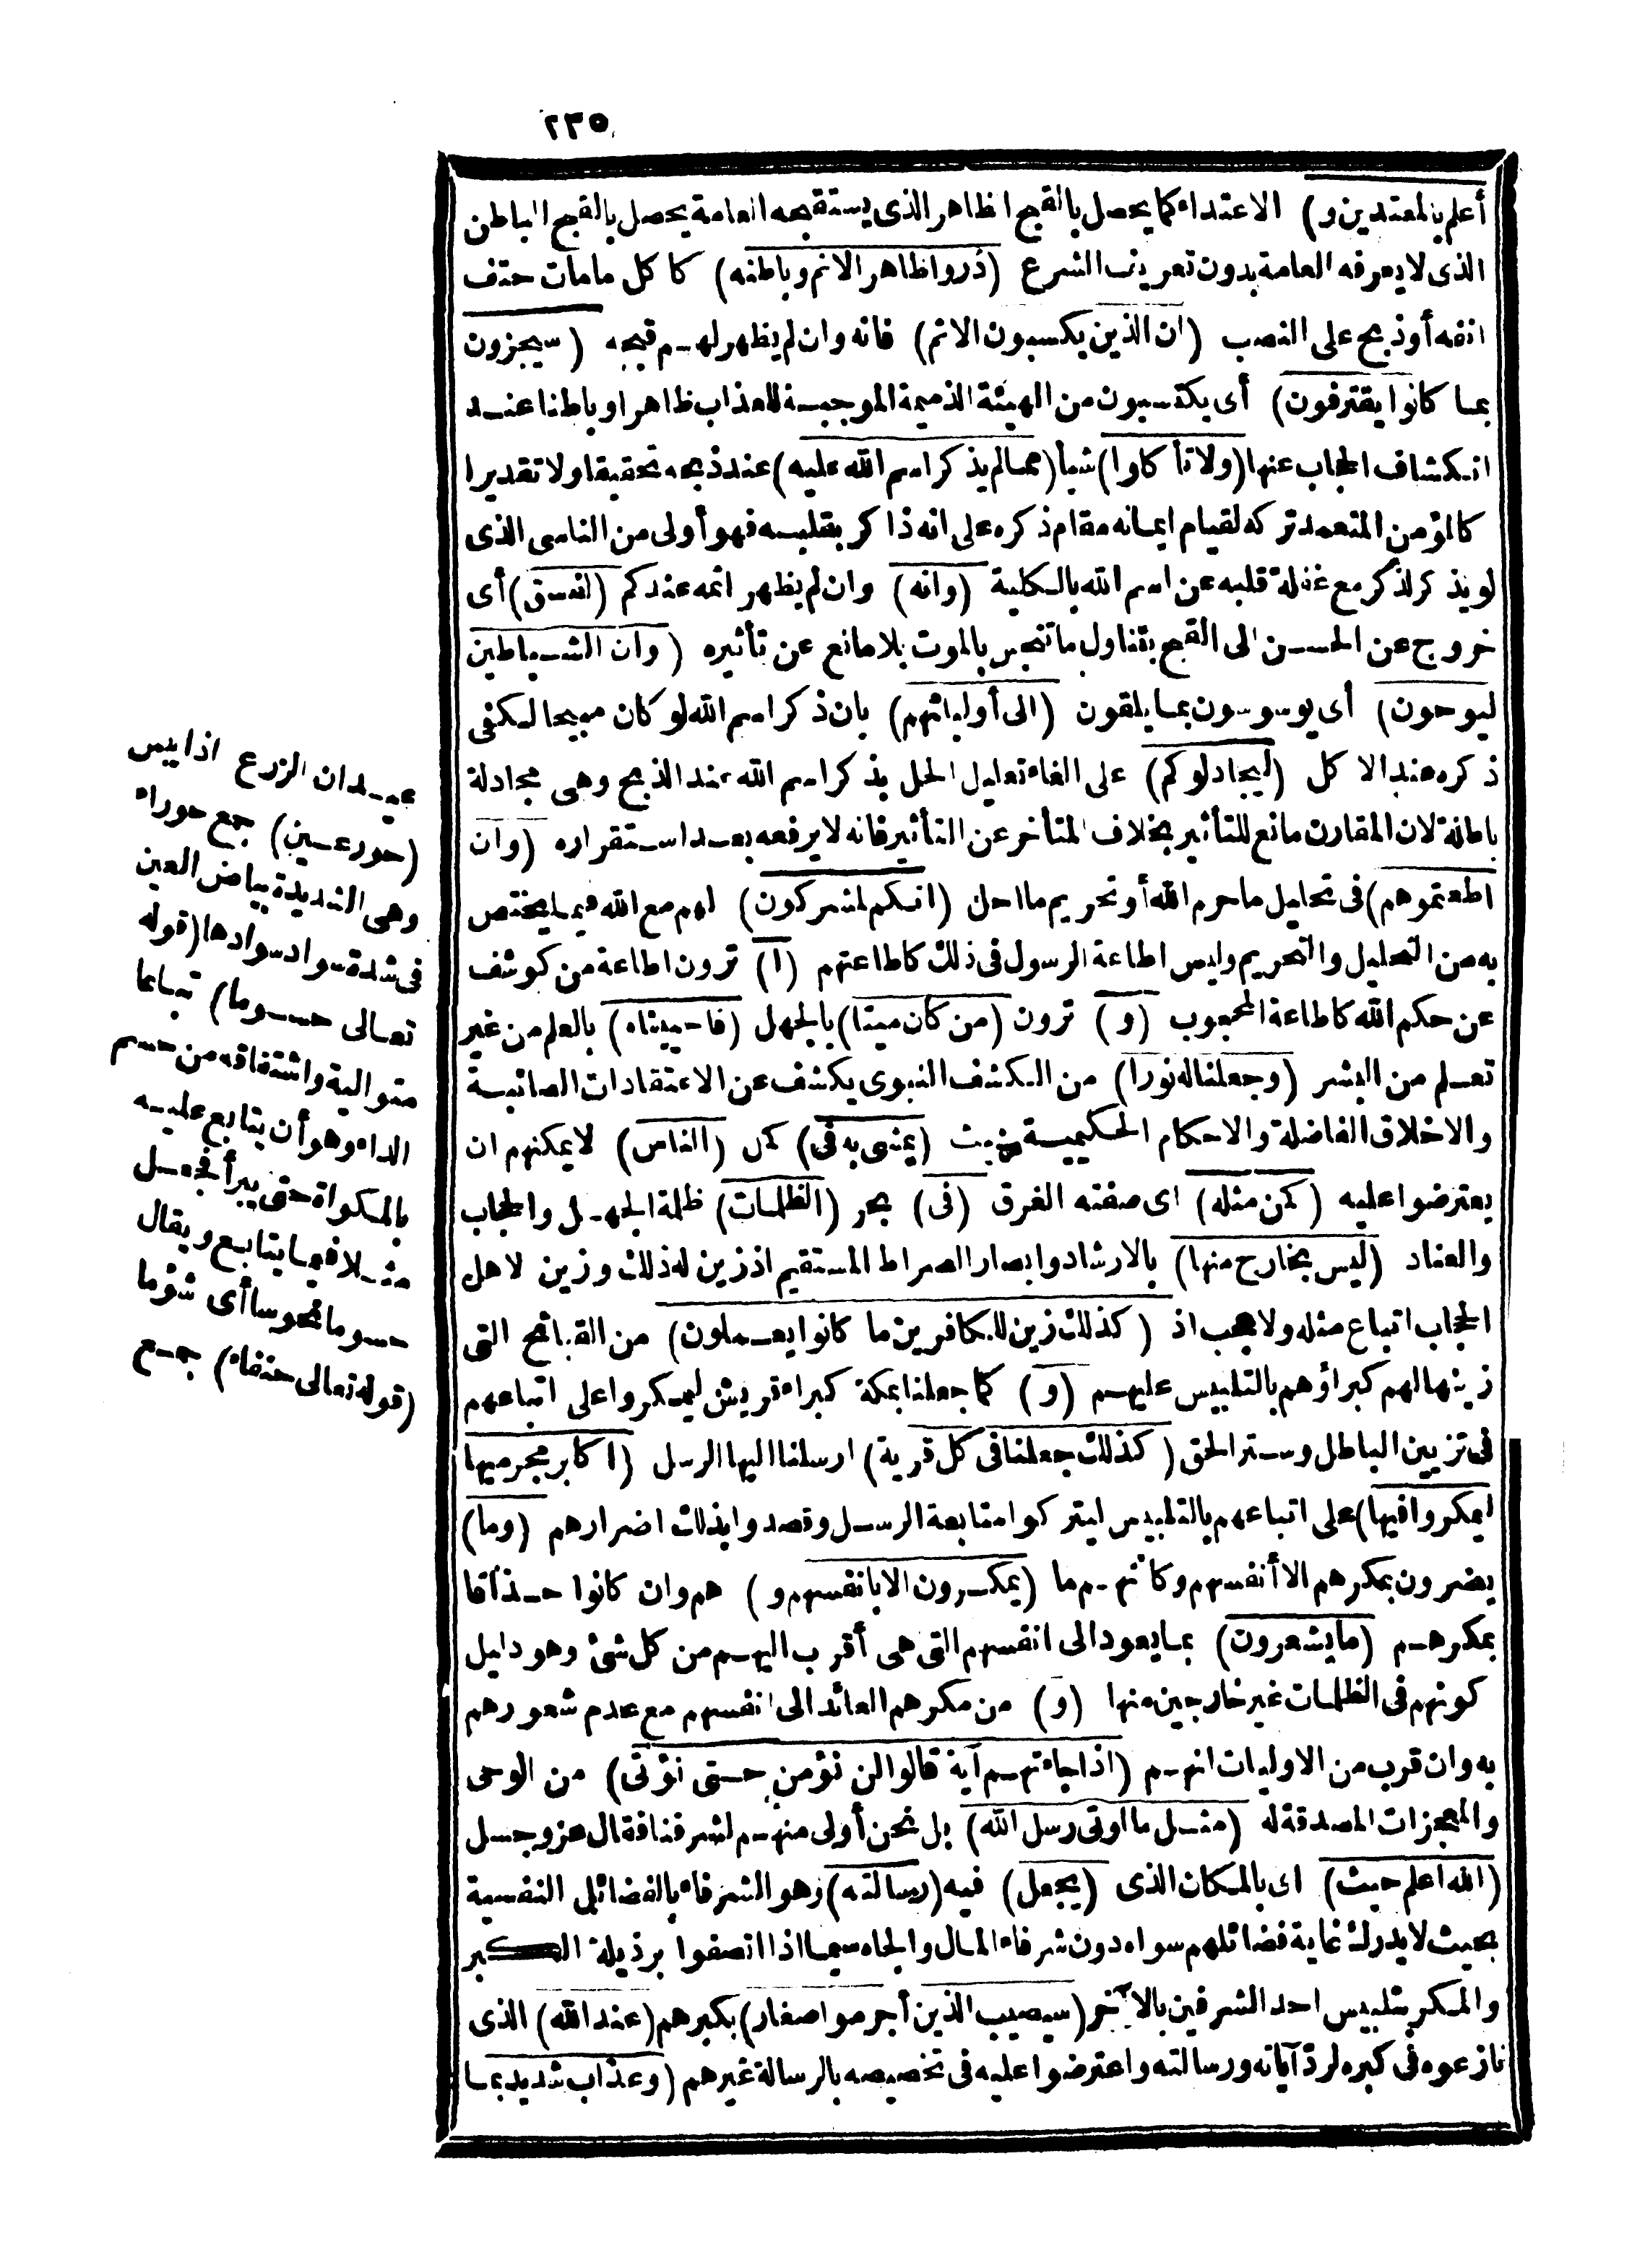 ٢٣٥
أعلم بالمعتدين و) الاعتداء كما يحصل بالقبح الظاهر الذى يستقبحه العامة يحصل بالقبح الباطن
الذى لا يعرفه العامة بدون تعريف الشرع (ذروا ظاهر الاثم وباطنه) كاكل ما مات حتف
انفه أو ذبح على النصب (ان الذين يكسبون الاثم) فانه وان لم يظهر لهم قبحه (سيجزون
بما كانوا يقترفون) أى يكتسبون من الهيئة الذميمة الموجبة للعذاب ظاهرا وباطنا عند
انكشاف الحجاب عنها (ولا تأكلوا) شيأ (مما لم يذكر اسم الله عليه) عند ذبحه تحقيقا ولا تقديرا
كالمؤمن المتعمد تركه لقيام ايمانه مقام ذكره على انه ذاكر بقلبه فهو أولى من الناسى الذى
لو يذكر لذكر مع غفلة قلبه عن اسم الله بالكلية (وانه) وان لم يظهر اثمه عندكم (لفسق) أى
خروج عن الحسن الى القبح بتناول ما تنجس بالموت بلا مانع عن تأثيره (وان الشياطين
ليوحون) أى يوسوسون بما يلقون (الى أوليائهم) بان ذكر اسم الله لو كان مبيحا لكفى
ذكره عند الاكل (ليجادلوكم) على الغاء تعليل الحل بذكر اسم الله عند الذبح وهى مجادلة
باطلة لان المقارن مانع للتأثير بخلاف المتأخر عن التأثير فانه لا يرفعه بعد استقراره (وان
اطعتموهم) فى تحليل ما حرم الله أو تحريم ما احل (انكم لمشركون) لهم مع الله فيما يختص
به من التحليل والتحريم وليس اطاعة الرسول فى ذلك كاطاعتهم (ا) ترون اطاعة من كوشف
عن حكم الله كاطاعة المحجوب (و) ترون (من كان ميتا) بالجهل (فاحييناه) بالعلم من غير
تعلم من البشر (وجعلنا له نورا) من الكشف النبوى يكشف عن الاعتقادات الصائبة
والاخلاق الفاضلة والاحكام الحكيمية بحيث (يمشى به فى) كل (الناس) لا يمكنهم ان
يعترضوا عليه (كمن مثله) اى صفته الغرق (فى) بحر (الظلمات) ظلمة الجهل والحجاب
والعناد (ليس بخارج منها) بالارشاد وابصار الصراط المستقيم اذ زين له ذلك وزين لاهل
الحجاب اتباع مثله ولا عجب اذ (كذلك زين للكافرين ما كانوا يعملون) من القبائح التى
زينها لهم كبراؤهم بالتلبيس عليهم (و) كما جعلنا بمكة كبراء قريش ليمكروا على اتباعهم
فى تزيين الباطل وستر الحق (كذلك جعلنا فى كل قرية) ارسلنا اليها الرسل (اكابر مجرميها
ليمكروا فيها) على اتباعهم بالتلبيس ليتركوا متابعة الرسل وقصدوا بذلك اضرارهم (وما)
يضرون بمكرهم الا أنفسهم وكانهم ما (يمكرون الا بانفسهم و) هم وان كانوا حذاقا
بمكرهم (ما يشعرون) بما يعود الى انفسهم التى هى أقرب اليهم من كل شئ وهو دليل
كونهم فى الظلمات غير خارجين منها (و) من مكرهم العائد الى انفسهم مع عدم شعورهم
به وان قرب من الاوليات انهم (اذا جاءتهم آية قالوا لن نؤمن حتى نؤتى) من الوحى
والمعجزات المصدقة له (مثل ما اوتى رسل الله) بل نحن أولى منهم لشرفنا فقال عز وجل
(الله اعلم حيث) اى بالمكان الذى (يجعل) فيه (رسالته) وهو الشرفاء بالفضائل النفسية
بحيث لا يدرك غاية فضائلهم سواه دون شرفاء المال والجاه سيما اذا اتصفوا برذيلة الكبر
والمكر بتلبيس احد الشرفين بالآخر (سيصيب الذين أجرموا صغار) بكبرهم (عند الله) الذى
نازعوه فى كبره لرد آياته ورسالته واعترضوا عليه فى تخصيصه بالرسالة غيرهم (وعذاب شديد بما
عيدان الزرع اذا يبس
(حور عين) جمع حوراء
وهى الشديدة بياض العين
فى شدة سواد سوادها (قوله
تعالى حسوما) تباعا
متوالية واشتقاقه من حسم
الداء وهو أن يتابع عليه
بالمكواة حتى يبرأ فجعل
مثلا فيما يتابع ويقال
حسوما نحوسا أى شؤما
(قوله تعالى حنفاء) جمع